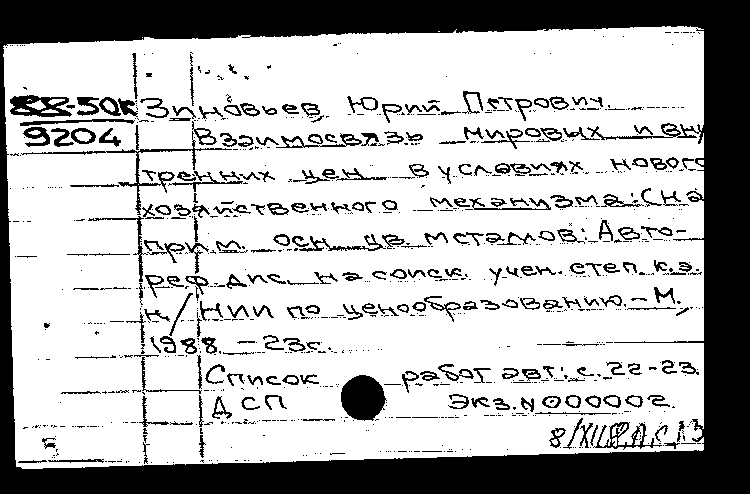 88-50к Зиновьев Юрий Петрович.
9204 Взаимосвязь мировых и вну
тренних цен в условиях нового
хозяйственного механизма: (На
прим. осн. цв. металлов: Авто-
реф дис. на соиск. учен. степ. к.э.
н/ НИИ по ценообразованию. - М.,
1988 - 23с.
Список работ авт.: с. 22-23.
ДСП Экз. N 000002.
8/XII